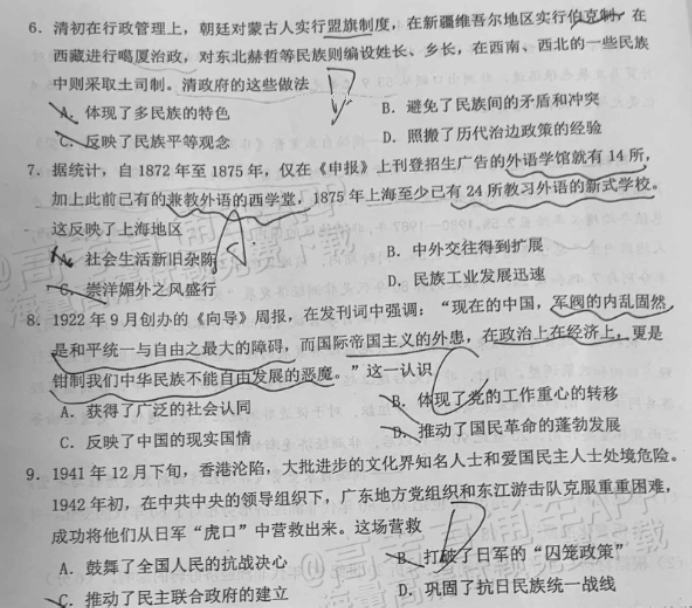 6. 清初在行政管理上，朝廷对蒙古人实行盟旗制度，在新疆维吾尔地区实行伯克制，在
西藏进行噶厦治政，对东北赫哲等民族则编设姓长、乡长，在西南、西北的一些民族
中则采取土司制。清政府的这些做法
A. 体现了多民族的特色 B. 避免了民族间的矛盾和冲突
C. 反映了民族平等观念 D. 照搬了历代治边政策的经验
7. 据统计，自 1872 年至 1875 年，仅在《申报》上刊登招生广告的外语学馆就有 14 所，
加上此前已有的兼教外语的西学堂，1875 年上海至少已有 24 所教习外语的新式学校。
这反映了上海地区
A. 社会生活新旧杂陈 B. 中外交往得到扩展
C. 崇洋媚外之风盛行 D. 民族工业发展迅速
8. 1922 年 9 月创办的《向导》周报，在发刊词中强调：“现在的中国，军阀的内乱固然
是和平统一与自由之最大的障碍，而国际帝国主义的外患，在政治上在经济上，更是
钳制我们中华民族不能自由发展的恶魔。”这一认识
A. 获得了广泛的社会认同 B. 体现了党的工作重心的转移
C. 反映了中国的现实国情 D. 推动了国民革命的蓬勃发展
9. 1941 年 12 月下旬，香港沦陷，大批进步的文化界知名人士和爱国民主人士处境危险。
1942 年初，在中共中央的领导组织下，广东地方党组织和东江游击队克服重重困难，
成功将他们从日军“虎口”中营救出来。这场营救
A. 鼓舞了全国人民的抗战决心 B. 打破了日军的“囚笼政策”
C. 推动了民主联合政府的建立 D. 巩固了抗日民族统一战线